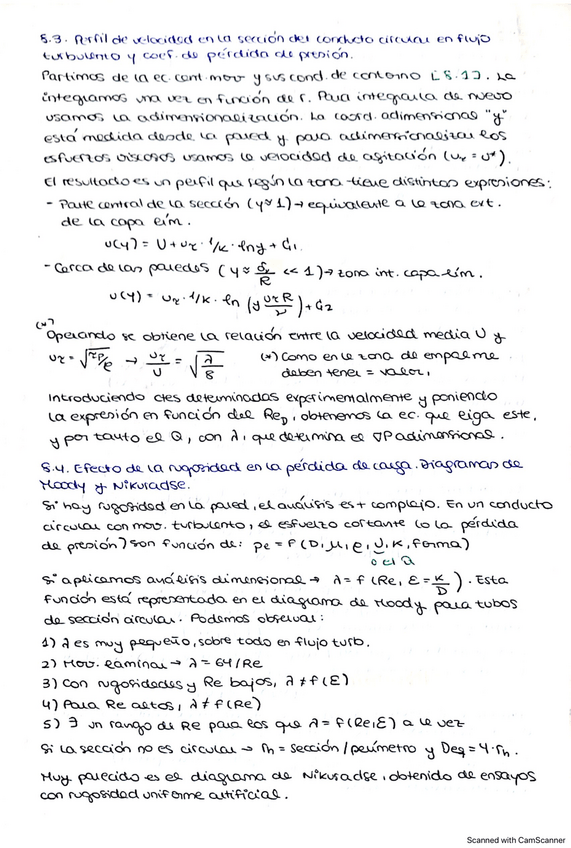 5.3. Perfil de velocidad en la sección del conducto circular en flujo
turbulento y coef. de pérdida de presión.
Partimos de la ec. cont. mov y sus cond. de contorno [5.1]. La
integramos una vez en función de r. Para integrarla de nuevo
usamos la adimensionalización. La coord. adimensional "y"
está medida desde la pared y para adimensionalizar los
esfuerzos viscosos usamos la velocidad de agitación (uτ = u*).
El resultado es un perfil que según la zona tiene distintas expresiones:
- Parte central de la sección (y≈1) → equivalente a la zona ext.
de la capa lím.
u(y) = U + uτ · 1/k · ln y + C1.
- Cerca de las paredes (y ≈ δv/R << 1) → zona int. capa lím.
u(y) = uτ · 1/k · ln (y uτR/ν) + C2
(*)
Operando se obtiene la relación entre la velocidad media U y
uτ = √τp/ρ → uτ/U = √λ/8 (*) Como en la zona de empalme
deben tener = valor,
Introduciendo ctes determinadas experimentalmente y poniendo
la expresión en función del ReD, obtenemos la ec. que liga este,
y por tanto el Q, con λ, que determina el ∇P adimensional.
5.4. Efecto de la rugosidad en la pérdida de carga. Diagramas de
Moody y Nikuradse.
Si hay rugosidad en la pared, el análisis es + complejo. En un conducto
circular con mov. turbulento, el esfuerzo cortante (o la pérdida
de presión) son función de: pe = f(D, μ, ρ, U, K, forma)
o el Q
Si aplicamos análisis dimensional → λ = f(Re, ε = K/D). Esta
función está representada en el diagrama de Moody para tubos
de sección circular. Podemos observar:
1) λ es muy pequeño, sobre todo en flujo turb.
2) Mov. laminar → λ = 64/Re
3) Con rugosidades y Re bajos, λ ≠ f(ε)
4) Para Re altos, λ ≠ f(Re)
5) ∃ un rango de Re para los que λ = f(Re, ε) a la vez
Si la sección no es circular → rh = sección/perímetro y Deq = 4·rh.
Muy parecido es el diagrama de Nikuradse, obtenido de ensayos
con rugosidad uniforme artificial.
Scanned with CamScanner